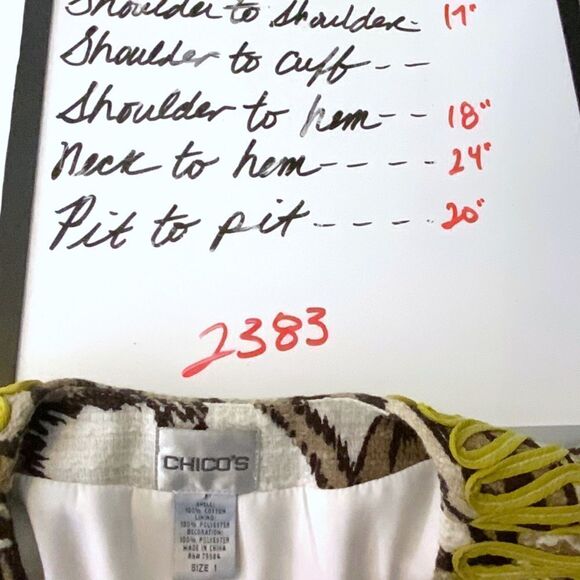 Shoulder to Shoulder- 17"
Shoulder to cuff--
Shoulder to hem-- 18"
Neck to hem---- 24"
Pit to pit---- 20"
2383
CHICO'S
SHELL:
100% COTTON
LINING:
100% POLYESTER
DECORATION:
100% POLYESTER
MADE IN CHINA
RN# 79984
SIZE 1